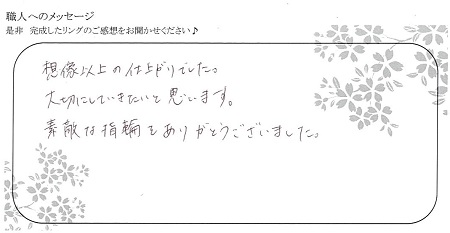 職人へのメッセージ
是非 完成したリングのご感想をお聞かせください♪
想像以上の仕上がりでした。
大切にしていきたいと思います。
素敵な指輪をありがとうございました。